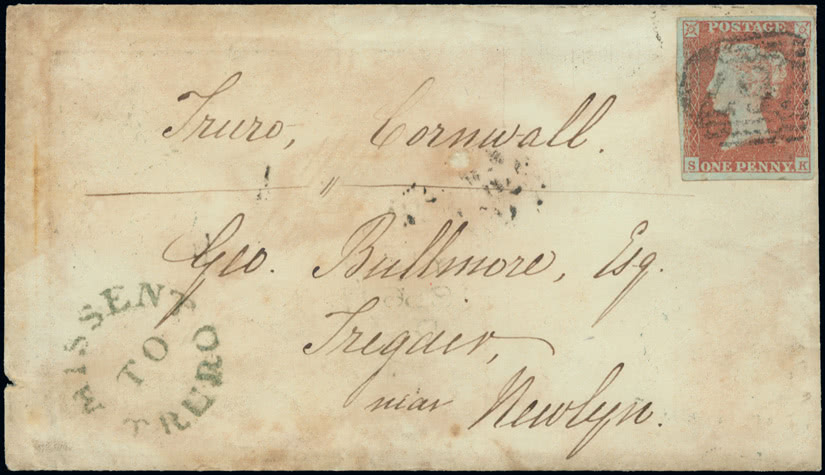 POSTAGE
S ONE PENNY K
Truro, Cornwall.
Geo. Bullmore, Esq.
Tregair,
near Newlyn.
MISSENT
TO
TRURO